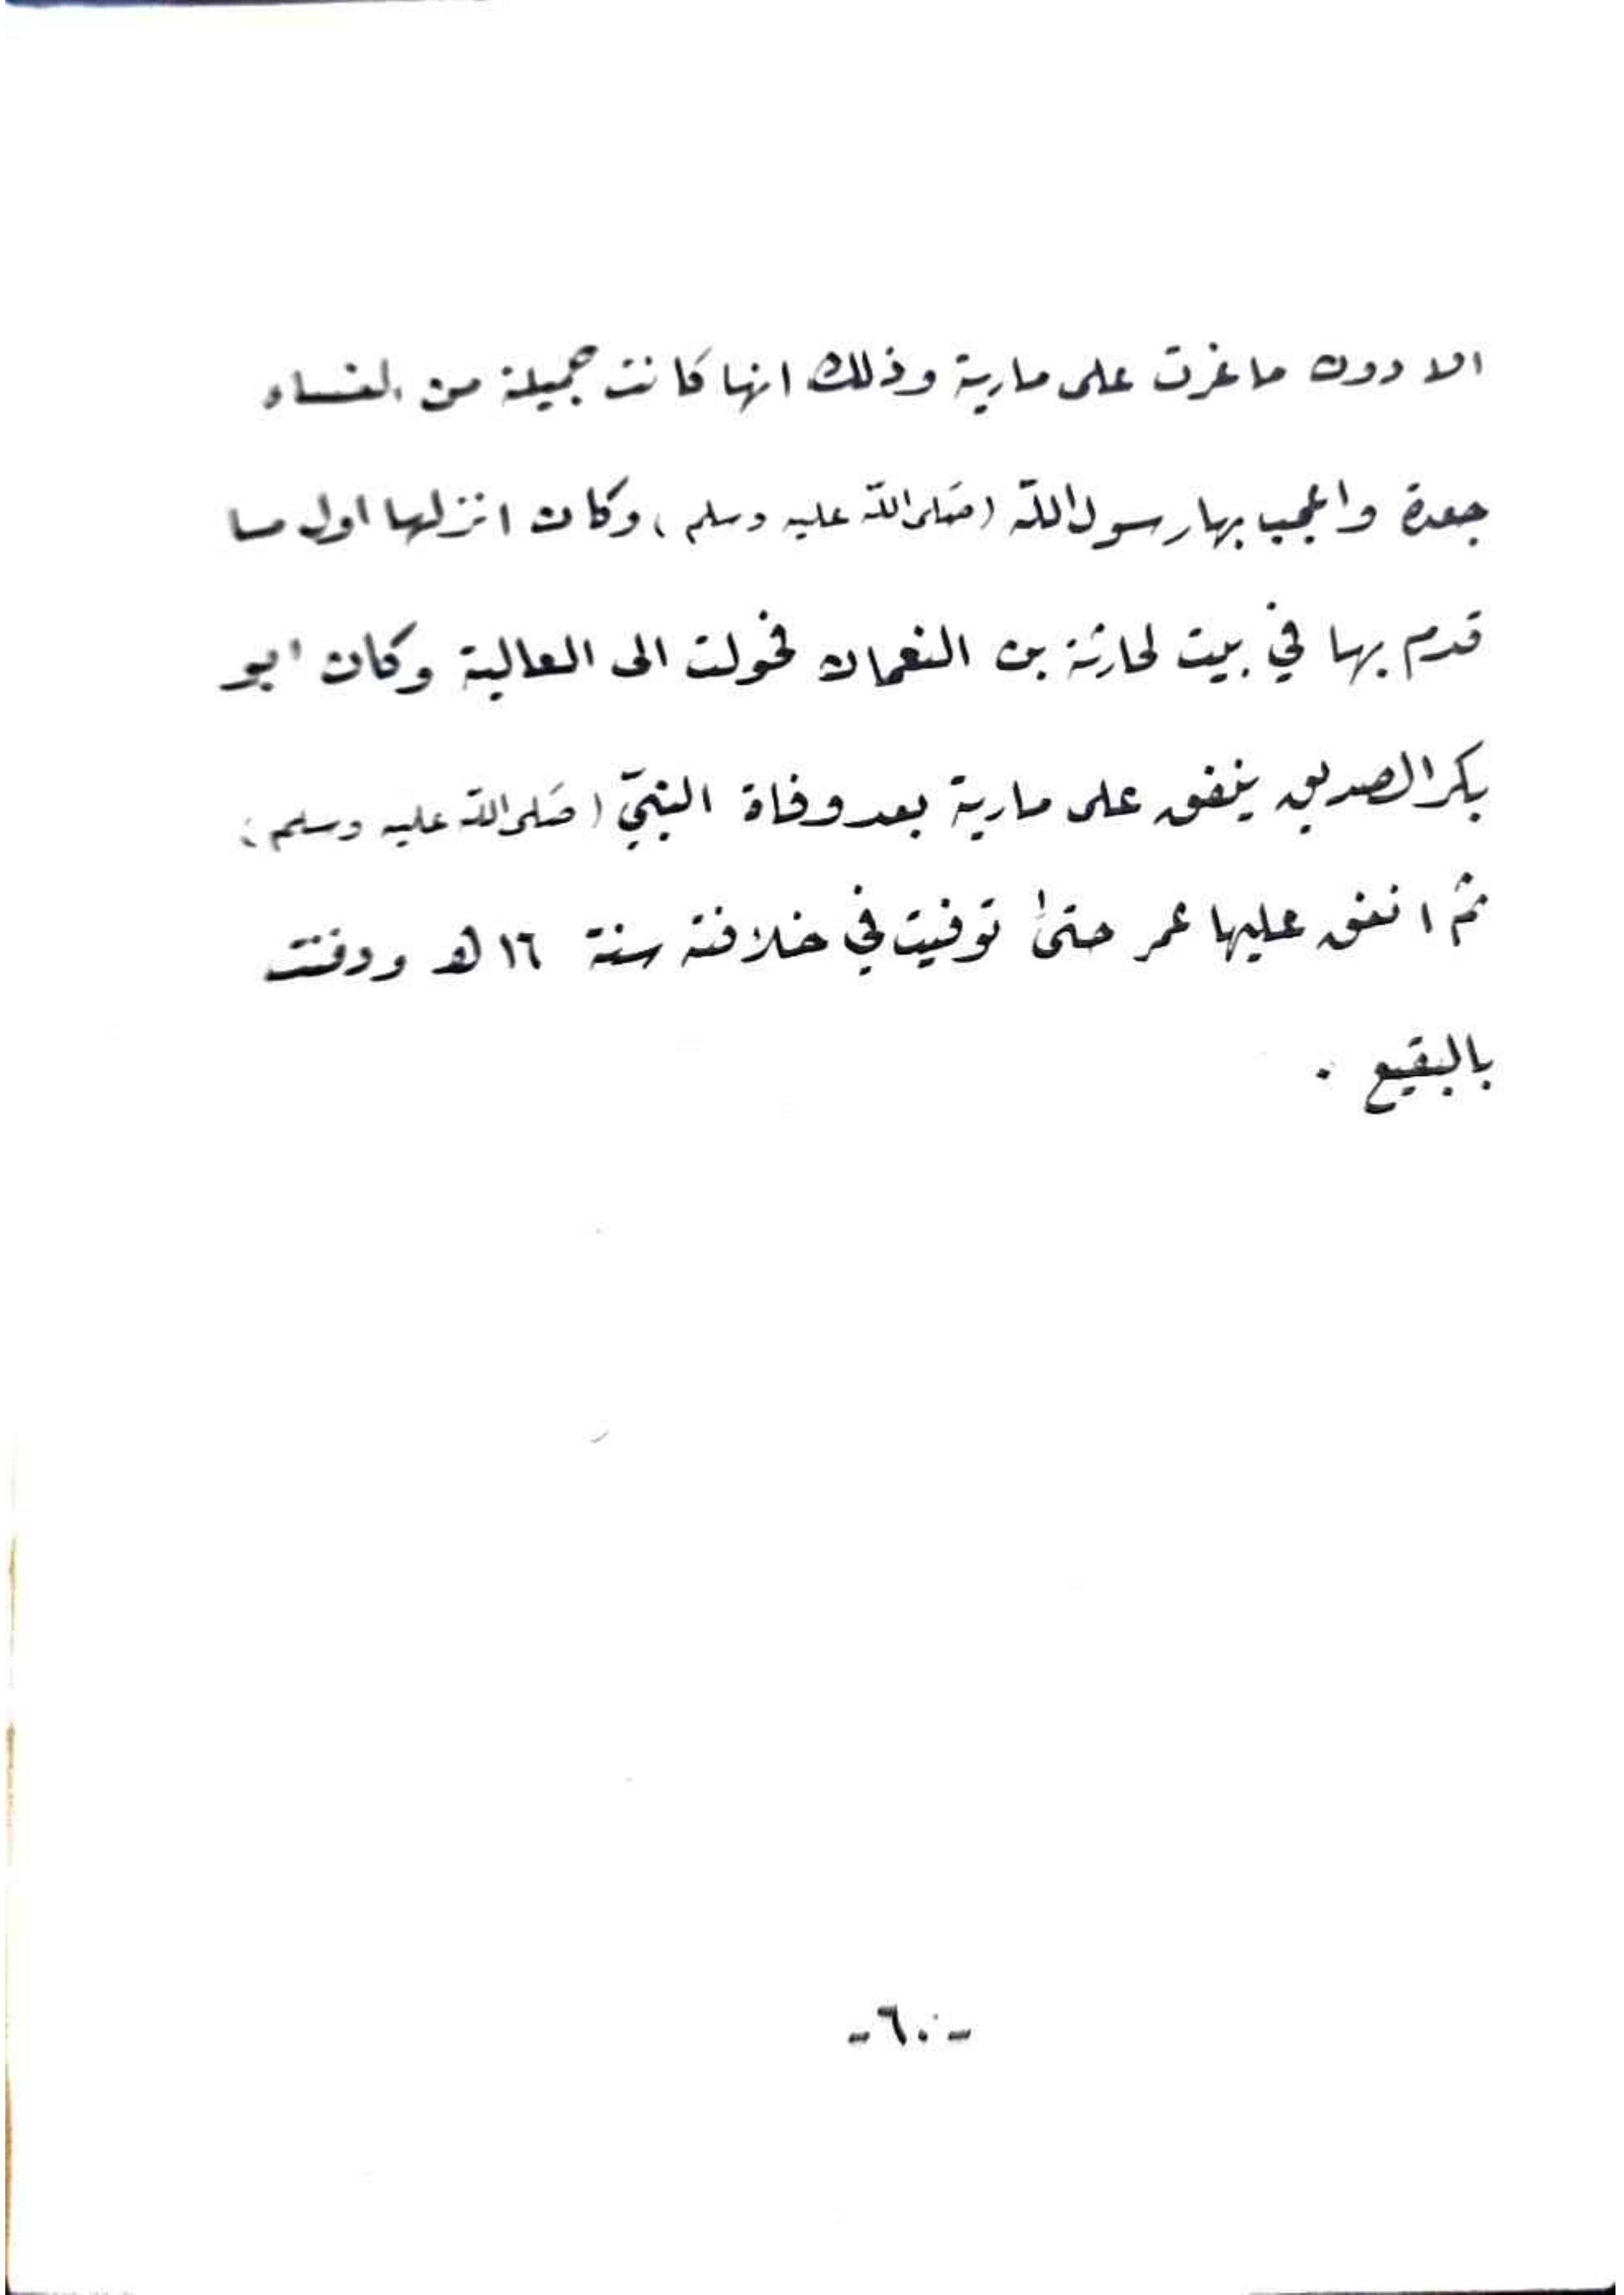 الا دون ما غرت على مارية وذلك انها كانت جميلة من النساء
جعدة واعجب بها رسول الله (صَلى الله عليه وسلم) وكان انزلها اول ما
قدم بها في بيت لحارثة بن النعمان فحولت الى العالية وكان ابو
بكر الصديق ينفق على مارية بعد وفاة النبيّ (صَلى الله عليه وسلم)
ثم انفق عليها عمر حتىٰ توفيت في خلافته سنة ١٦ هـ ودفنت
بالبقيع .
-٦٠-